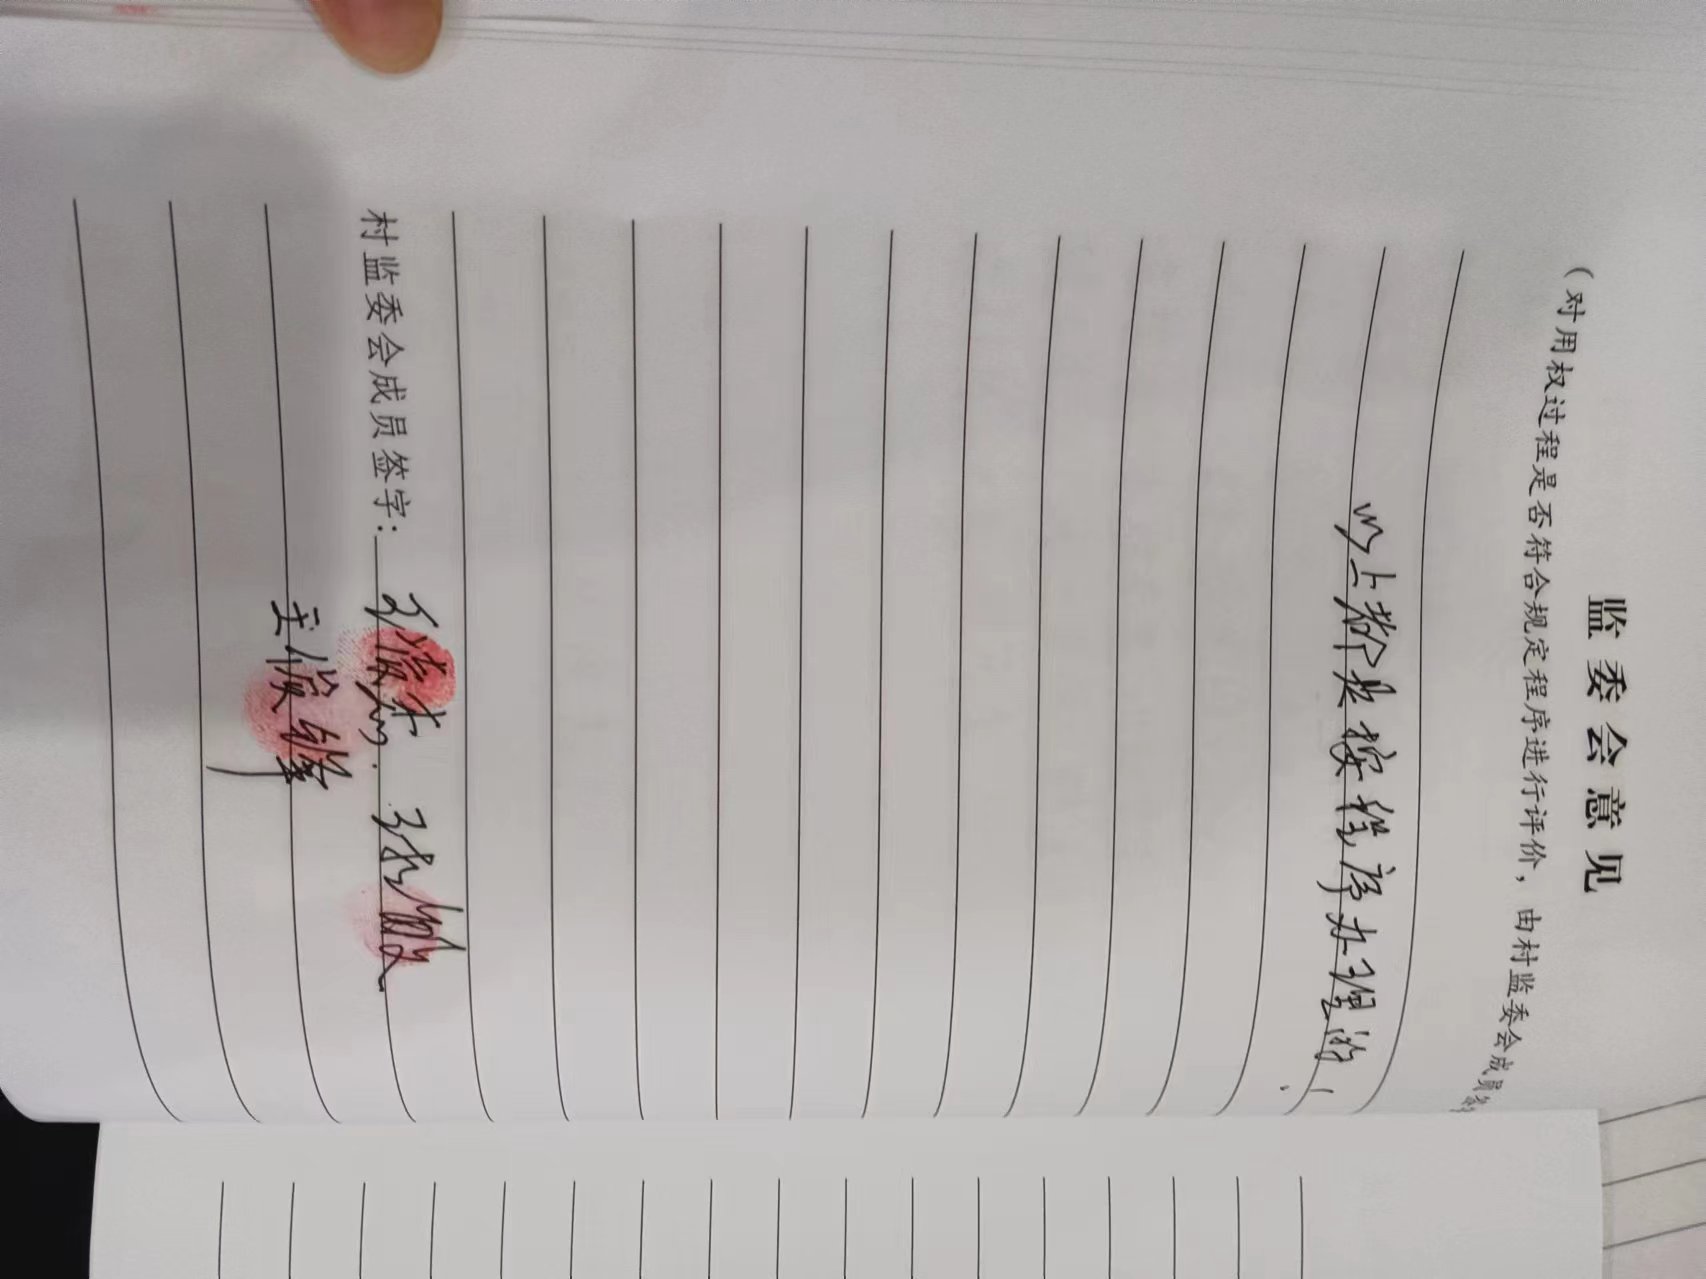 监委会意见
(对用权过程是否符合规定程序进行评价，由村监委会成员
以上都是按程序办理的！
村监委会成员签字：